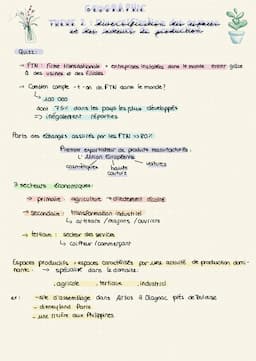 GEOGRAPHIE
THEME 2 : diversification des espaces
et des acteurs de production
Quizz :
→ FTN : firme transnationale → entreprises installées dans le monde entier grâce
à des usines et des filiales
→ Combien compte-t-on de FTN dans le monde?
↳ 100 000
dont 75% dans les pays les plus développés
=> inégalement réparties
Parts des échanges assurés par les FTN => 70%
Premier exportateur de produits manufacturés :
L'Union Européenne
cosmétiques haute couture voitures
3 secteurs économiques :
→ primaire : agriculture →
→ secondaire : transformation industriel
↳ artisans / maçons / ouvriers
→ tertiaire : secteur des services
↳ coiffeur / commerçant
Espaces productifs : espaces caractérisés par une activité de production domi-
nante. → spécialisé dans le domaine :
. agricole . tertiaire . industriel
ex : → site d'assemblage dans Airbus à Blagnac près de Toulouse
→ disneyland Paris
→ une rizière aux Philippines